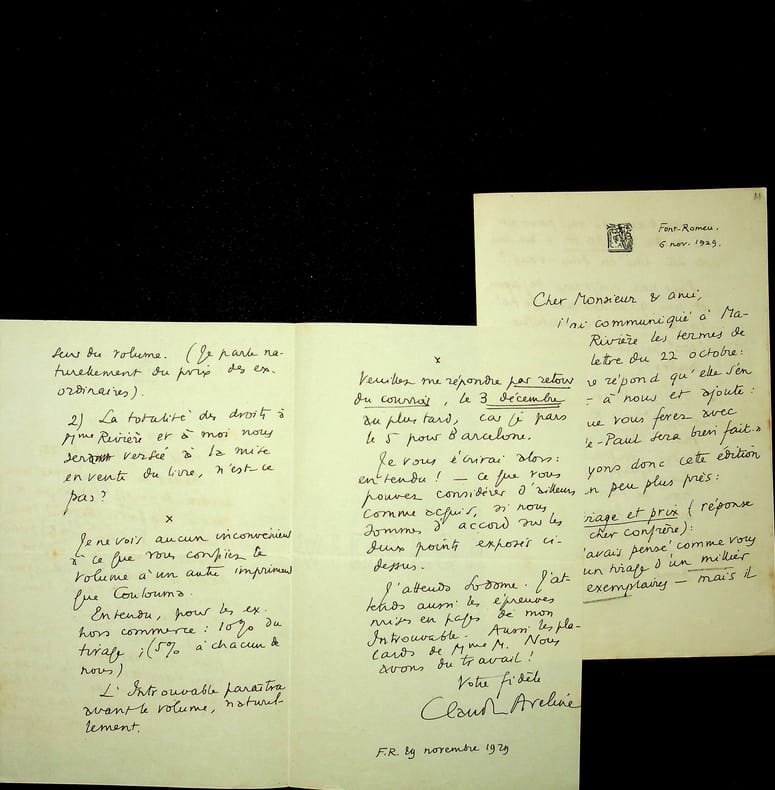 seur du volume. (Je parle na-
turellement du prix des ex.
ordinaires).
2) La totalité des droits à
Mme Rivière et à moi nous
seront versés à la mise
en vente du livre, n'est-ce
pas?
x
Je ne vois aucun inconvénient
à ce que vous confiiez le
volume à un autre imprimeur
que Coulouma.
Entendu, pour les ex.
hors commerce : 10% du
tirage ; (5% à chacun de
nous)
L'Introuvable paraîtra
avant le volume, naturel-
lement.
x
Veuillez me répondre par retour
du courrier, le 3 décembre
au plus tard, car je pars
le 5 pour Barcelone.
Je vous écrirai alors:
entendu! — ce que vous
pouvez considérer d'ailleurs
comme acquis, si nous
sommes d'accord sur les
deux points exposés ci-
dessus.
J'attends Sodome. J'at-
tends aussi les épreuves
mises en pages de mon
Introuvable. Aussi les pla-
cards de Mme M. Nous
avons du travail!
Votre fidèle
Claude Aveline
F.R. 29 novembre 1929
Font-Romeu.
6 nov. 1929.
Cher Monsieur & ami,
j'ai communiqué à Ma-
Rivière les termes de
lettre du 22 octobre:
e répond qu'elle s'en
à nous et ajoute:
ue vous ferez avec
e-Paul sera bien fait."
yons donc cette édition
n peu plus près:
irage et prix (réponse
cher confrère):
'avais pensé comme vous
un tirage d'un millier
exemplaires — mais il